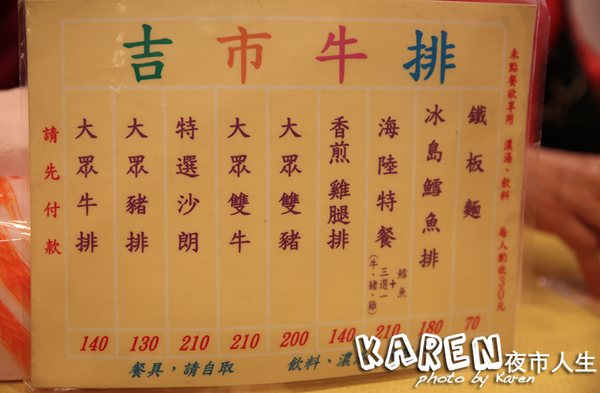 吉市牛排
未點餐欲享用 濃湯、飲料 每人酌收30元
鐵板麵 70
冰島鱈魚排 180
海陸特餐 鱈魚+三選一(牛、豬、雞) 210
香煎雞腿排 140
大眾雙豬 200
大眾雙牛 210
特選沙朗 210
大眾豬排 130
大眾牛排 140
請先付款
餐具,請自取 飲料、濃
KAREN夜市人生
photo by Karen